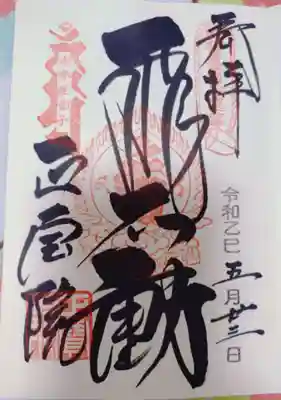 奉拝
令和乙巳五月廿三日
飛不動
正宝院